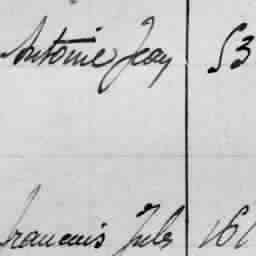 Antoine Jean 53
François Jules 161